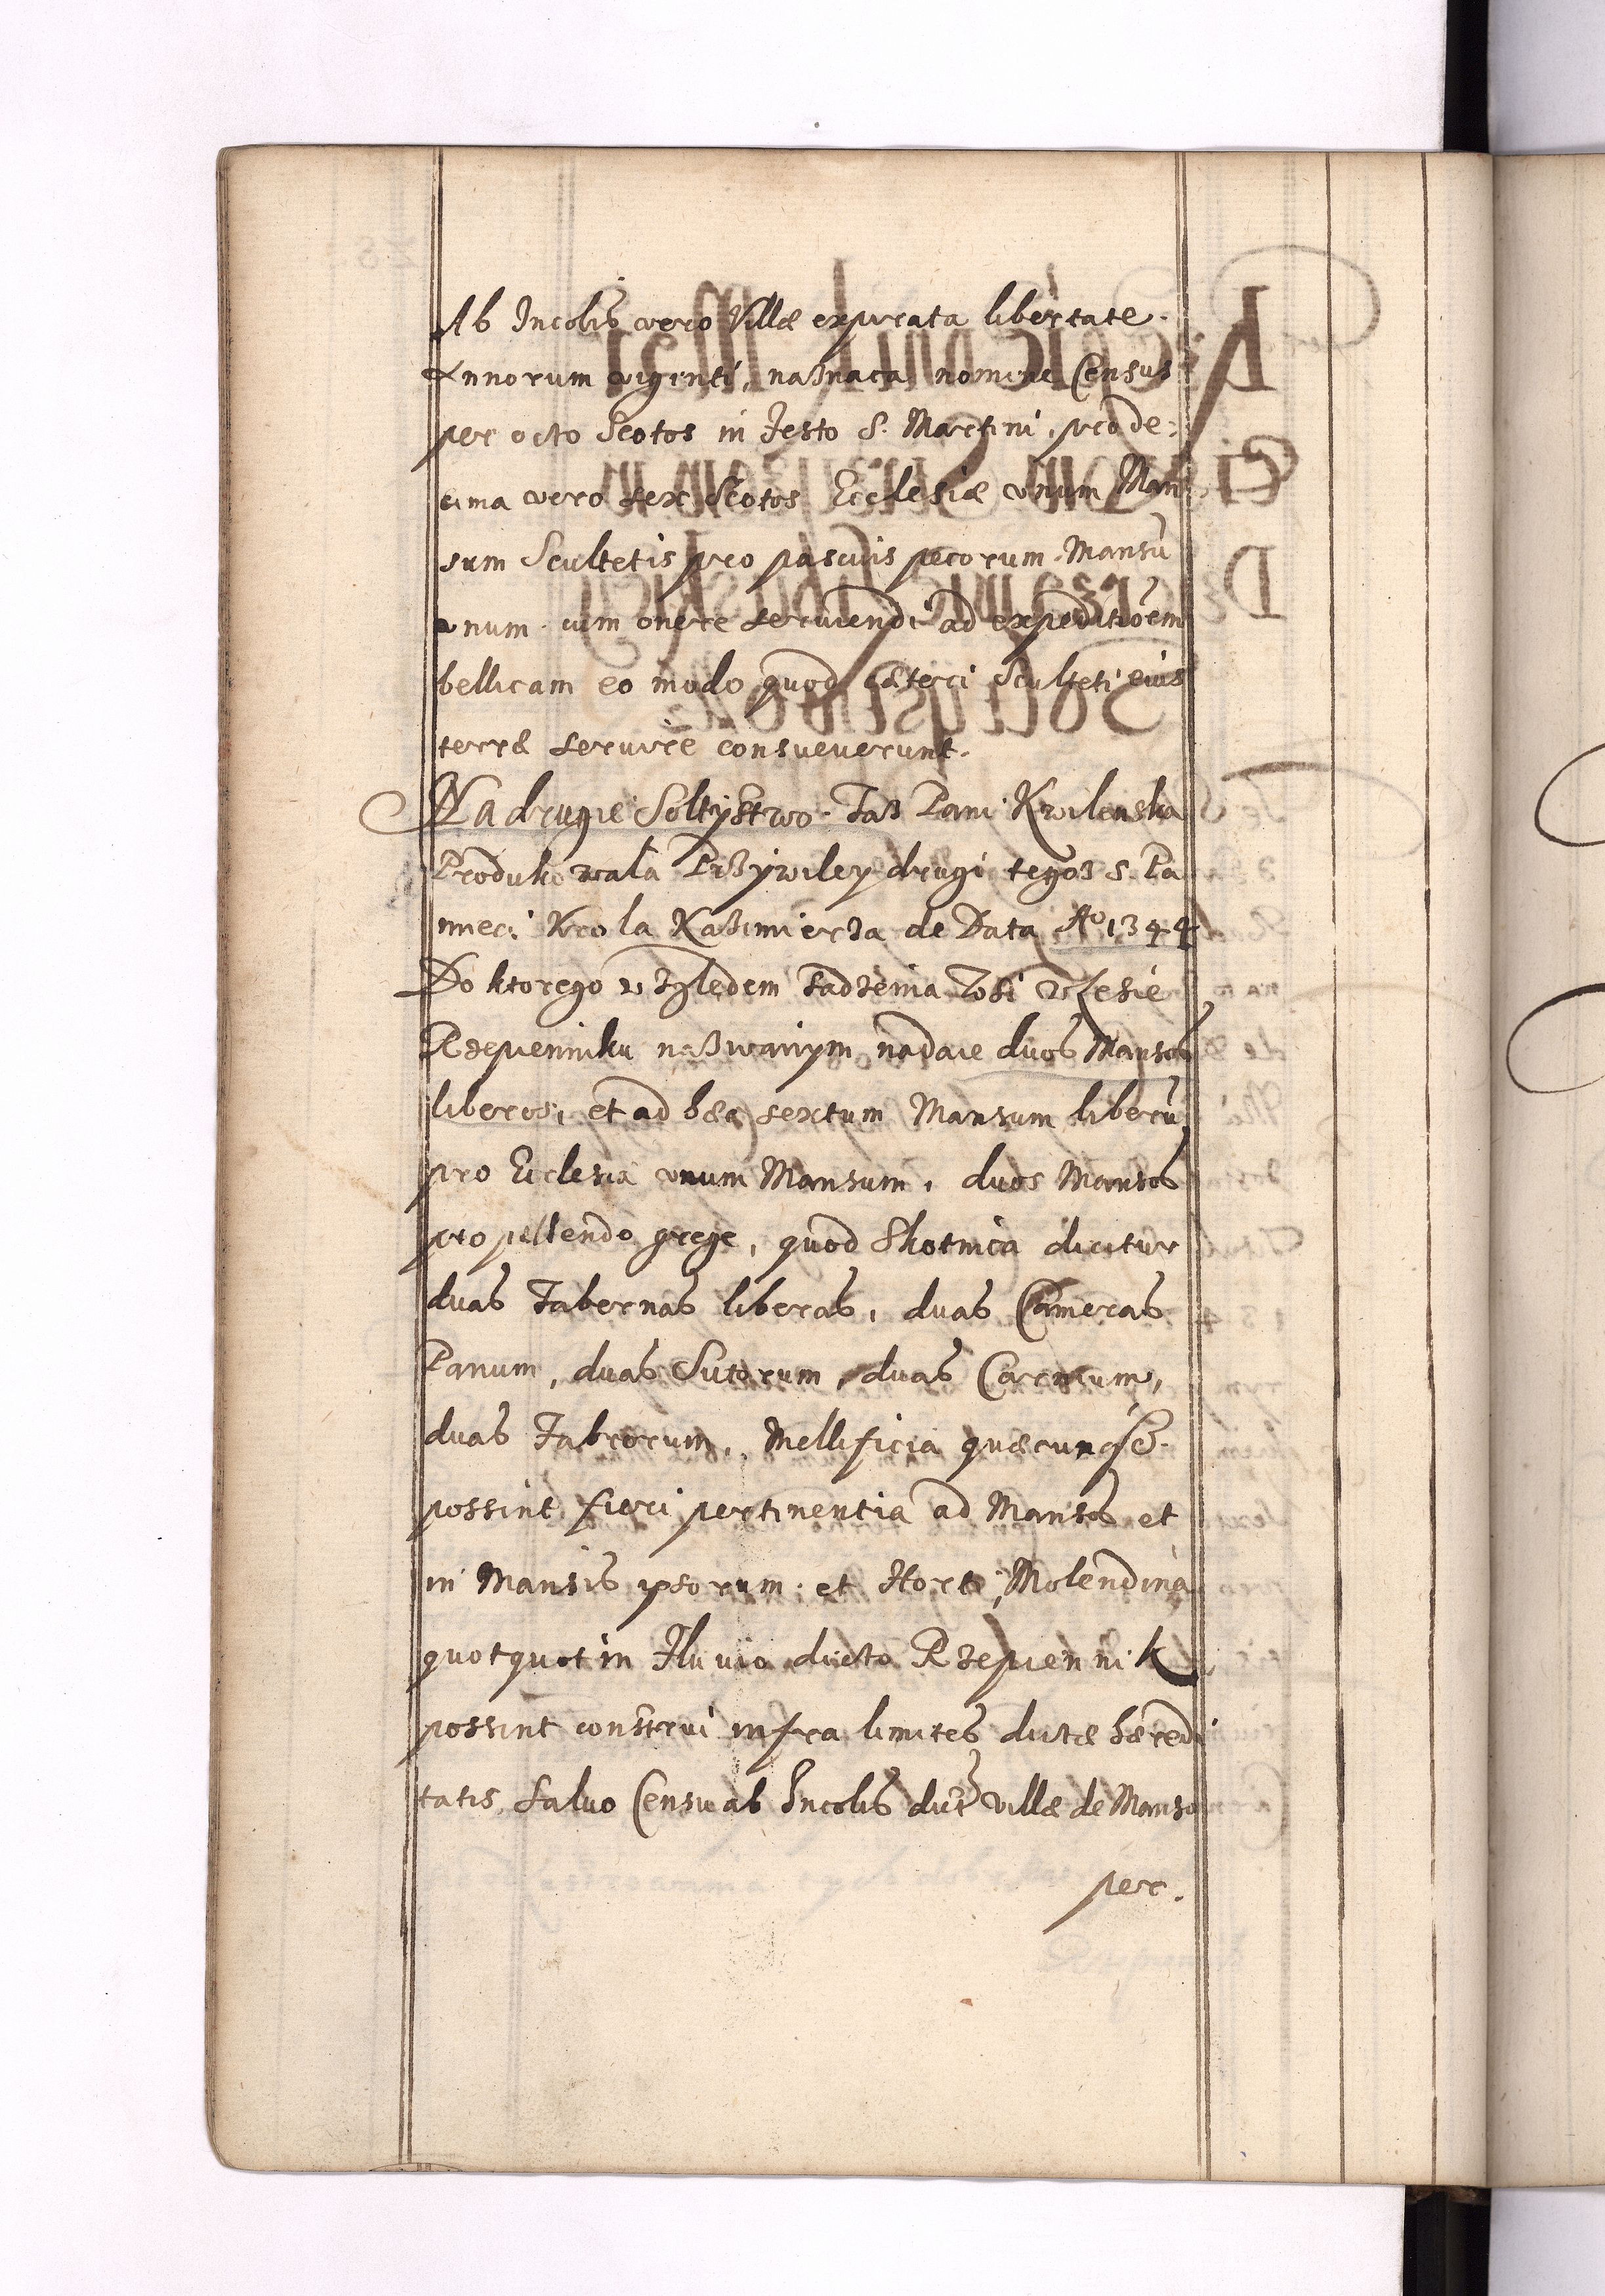 Ab Incolis vero Villæ expirata libertate
Annorum viginti, naznaca nomine Census
per octo Scotos in Festo S. Martini, pro de:
cima vero sex Scotos Ecclesiæ vnum Man
sum Scultetis pro pascuis pecorum Mansū
vnum cum onere seruiendi ad expeditioēm
bellicam eo modo quod cæteri Sculteti eius
terræ seruire consueuerunt.
Na drugie Soltÿstwo Taß Pani Kwilenska
Produkowała Przÿwiley drugi tegoß S. Pa
mieci Krola Kaźimierza de Data Aº 1344
Do ktorego wzgledem sadzenia Wsi w Lesie
Rzepienniku nazwanÿm nadaie duos Mansos
liberos, et ad hæc sextum Mansum liberū
pro Ecclesia vnum Mansum, duos Mansos
pro pellendo grege, quod Skotnica dicitur
duas Tabernas liberas, duas Cameras
Panum, duas Sutorum, duas Carnium,
duas Fabrorum, Mellificia quæcunqȝ
possint fieri pertinentia ad Mansos et
in Mansis ipsorum et Horti, Molendina
quotquot in Fluuio dicto Rzepiennik
possint construi infra limites dictæ hæredi
tatis, Saluo Censu ab Incolis dict villæ de Manso
per.